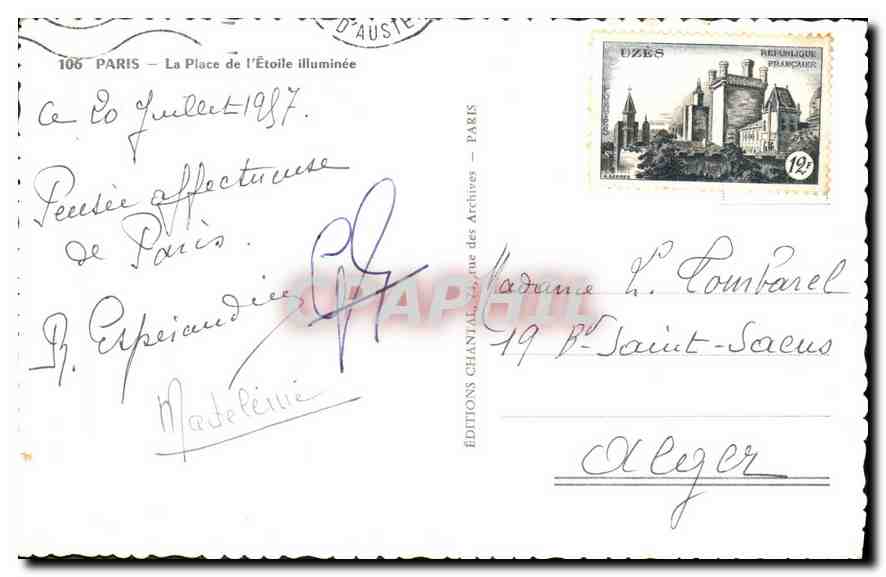 D'AUSTE
106 PARIS — La Place de l'Étoile illuminée
UZÈS
RÉPUBLIQUE
FRANÇAISE
POSTES
12F
Ce 20 Juillet 1957.
Pensée affectueuse
de Paris.
R. Espérandieu
Madeleine
ÉDITIONS CHANTAL, rue des Archives — PARIS
CPAPHIL
Madame L. Tombarel
19 Bd Saint-Saens
Alger